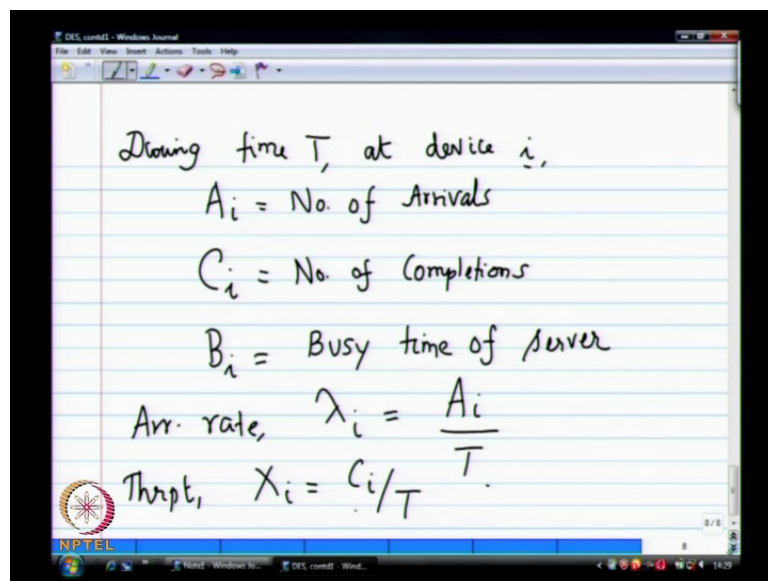 DES, contd1 - Windows Journal
File Edit View Insert Actions Tools Help
During time T, at device i,
Ai = No. of Arrivals
Ci = No. of Completions
Bi = Busy time of server
Arr. rate, λi = Ai/T
Thrpt, Xi = Ci/T
8/8
8
NPTEL
Note1 - Windows Jo...
DES, contd1 - Wind...
14:29